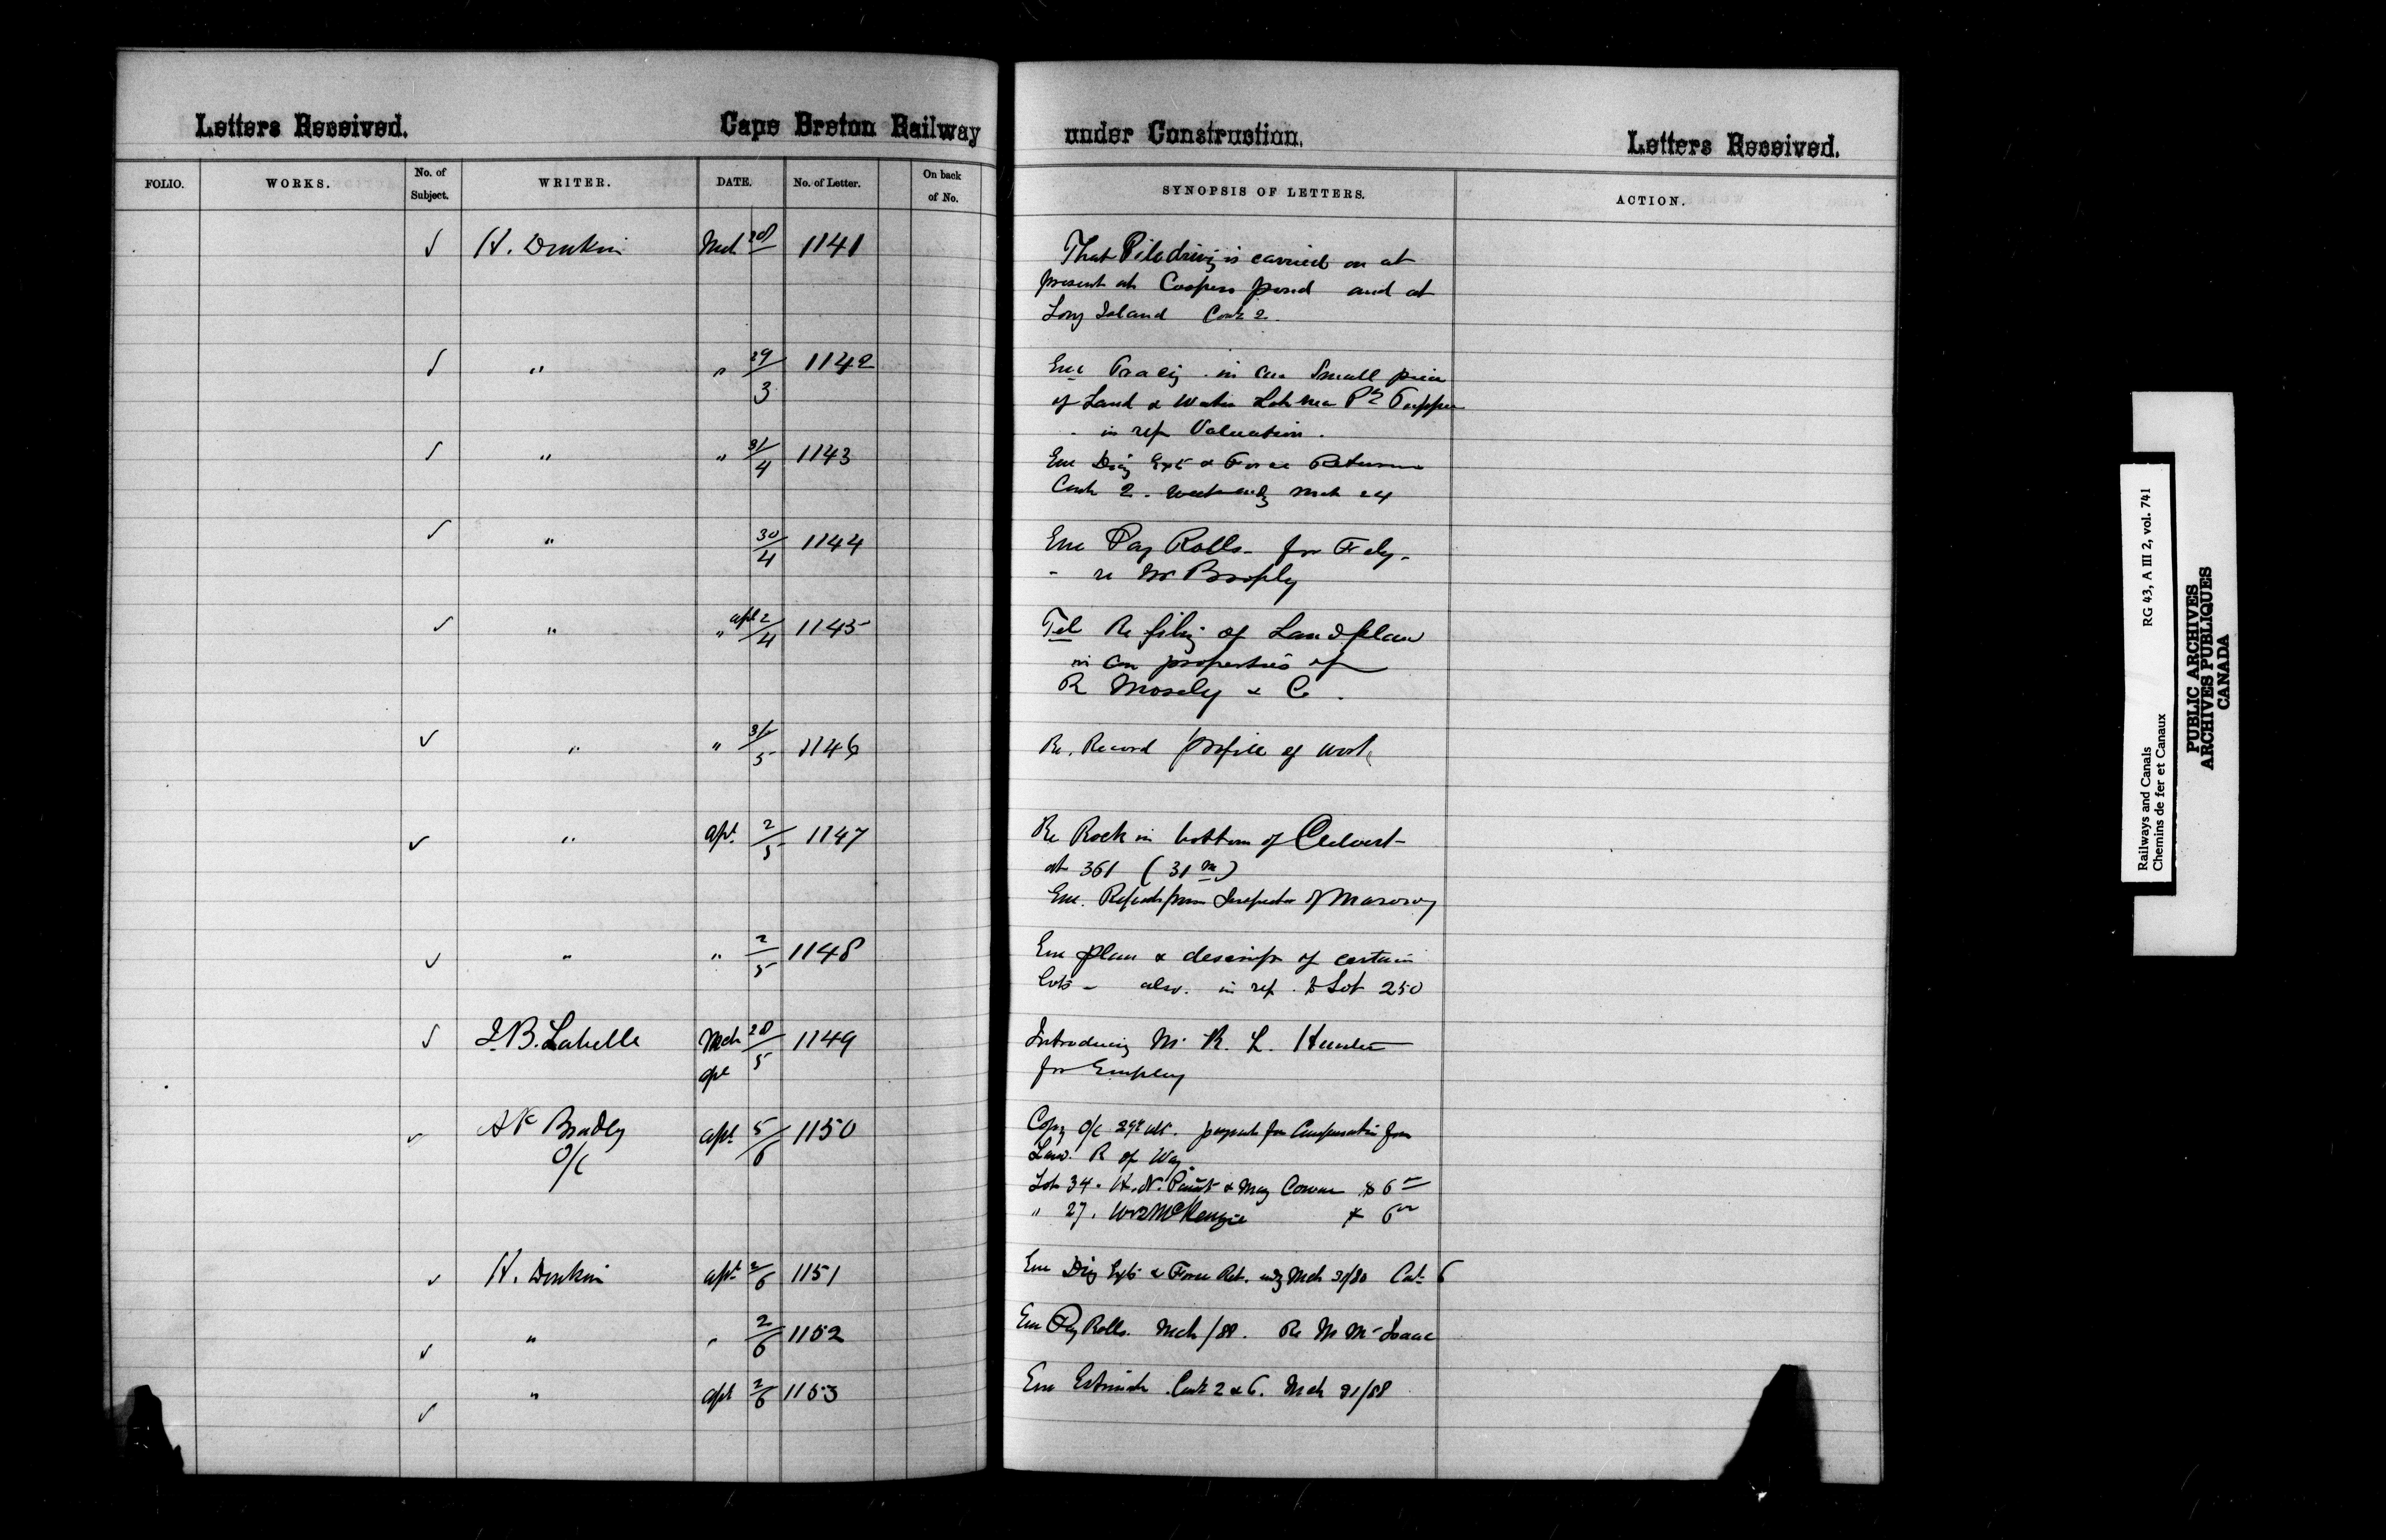 Letters Received. Cape Breton Railway under Construction. Letters Received.
FOLIO. WORKS. No. of Subject. WRITER. DATE. No. of Letter. On back of No. SYNOPSIS OF LETTERS. ACTION.
✓ H. Donkin Mch 28 1141 That Piledriving is carried on at
present at Coopers pond and at
Long Island Cont 2.
✓ " " 29/3 1142 Enc Tracing in Small piece
of Land & Water Lot near Pt Tupper
in ref Valuation.
✓ " " 31/4 1143 Enc Force Returns
Cont 2. Mch 24
✓ " 30/4 1144 Enc Pay Rolls for Feby.
re Mr Brophy
✓ " " apl 2/4 1145 Tel Re filing of Land plan
in properties of
R Mosely & Co.
✓ " " 31/5 1146 Re. Record profile of work
✓ " apl. 2/5 1147 Re Rock in bottom of Culvert
at 361 (31 m)
Enc. Report from Inspector of Masonry
✓ " " 2/5 1148 Enc plan & descrip of certain
lots - also. in ref. to Lot 250
✓ J.B. Labelle Mch 28/5 1149 Introducing Mr R. L. Hunter
apl for Employ
✓ Bradley apl 5/6 1150 Copy O/C 29th ult. payment for Compensation for
O/C Land. R of Way.
Lot 34. H. N. Paint & May $6
" 27. McKenzie 6
✓ H. Donkin apl 2/6 1151 Enc & Force Ret. Mch 31/88 Cont 6
✓ " " 2/6 1152 Enc Pay Rolls. Mch/88. Re Mr McIsaac
✓ " apl 2/6 1153 Enc Estimate Cont 2 & 6. Mch 31/88
Railways and Canals RG 43, A III 2, vol. 741
Chemins de fer et Canaux
PUBLIC ARCHIVES
ARCHIVES PUBLIQUES
CANADA